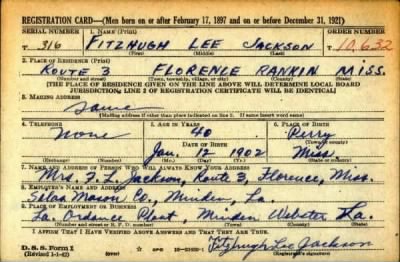 REGISTRATION CARD—(Men born on or after February 17, 1897 and on or before December 31, 1921)
SERIAL NUMBER 1. NAME (Print) ORDER NUMBER
T 316 FITZHUGH LEE JACKSON T10,632
(First) (Middle) (Last)
2. PLACE OF RESIDENCE (Print)
ROUTE 3 FLORENCE RANKIN MISS.
(Number and street) (Town, township, village, or city) (County) (State)
[THE PLACE OF RESIDENCE GIVEN ON THE LINE ABOVE WILL DETERMINE LOCAL BOARD
JURISDICTION; LINE 2 OF REGISTRATION CERTIFICATE WILL BE IDENTICAL]
3. MAILING ADDRESS
Same
[Mailing address if other than place indicated on line 2. If same insert word same]
4. TELEPHONE 5. AGE IN YEARS 6. PLACE OF BIRTH
None 40 Perry
DATE OF BIRTH (Town or county)
Jan. 12 1902 Miss
(Exchange) (Number) (Mo.) (Day) (Yr.) (State or country)
7. NAME AND ADDRESS OF PERSON WHO WILL ALWAYS KNOW YOUR ADDRESS
Mrs. F. L. Jackson, Route 3, Florence, Miss.
8. EMPLOYER'S NAME AND ADDRESS
Silas Mason Co., Minden, La.
9. PLACE OF EMPLOYMENT OR BUSINESS
La. Ordance Plant, Minden Webster La.
(Number and street or R. F. D. number) (Town) (County) (State)
I AFFIRM THAT I HAVE VERIFIED ABOVE ANSWERS AND THAT THEY ARE TRUE.
D. S. S. Form 1
(Revised 1-1-42) Fitzhugh Lee Jackson